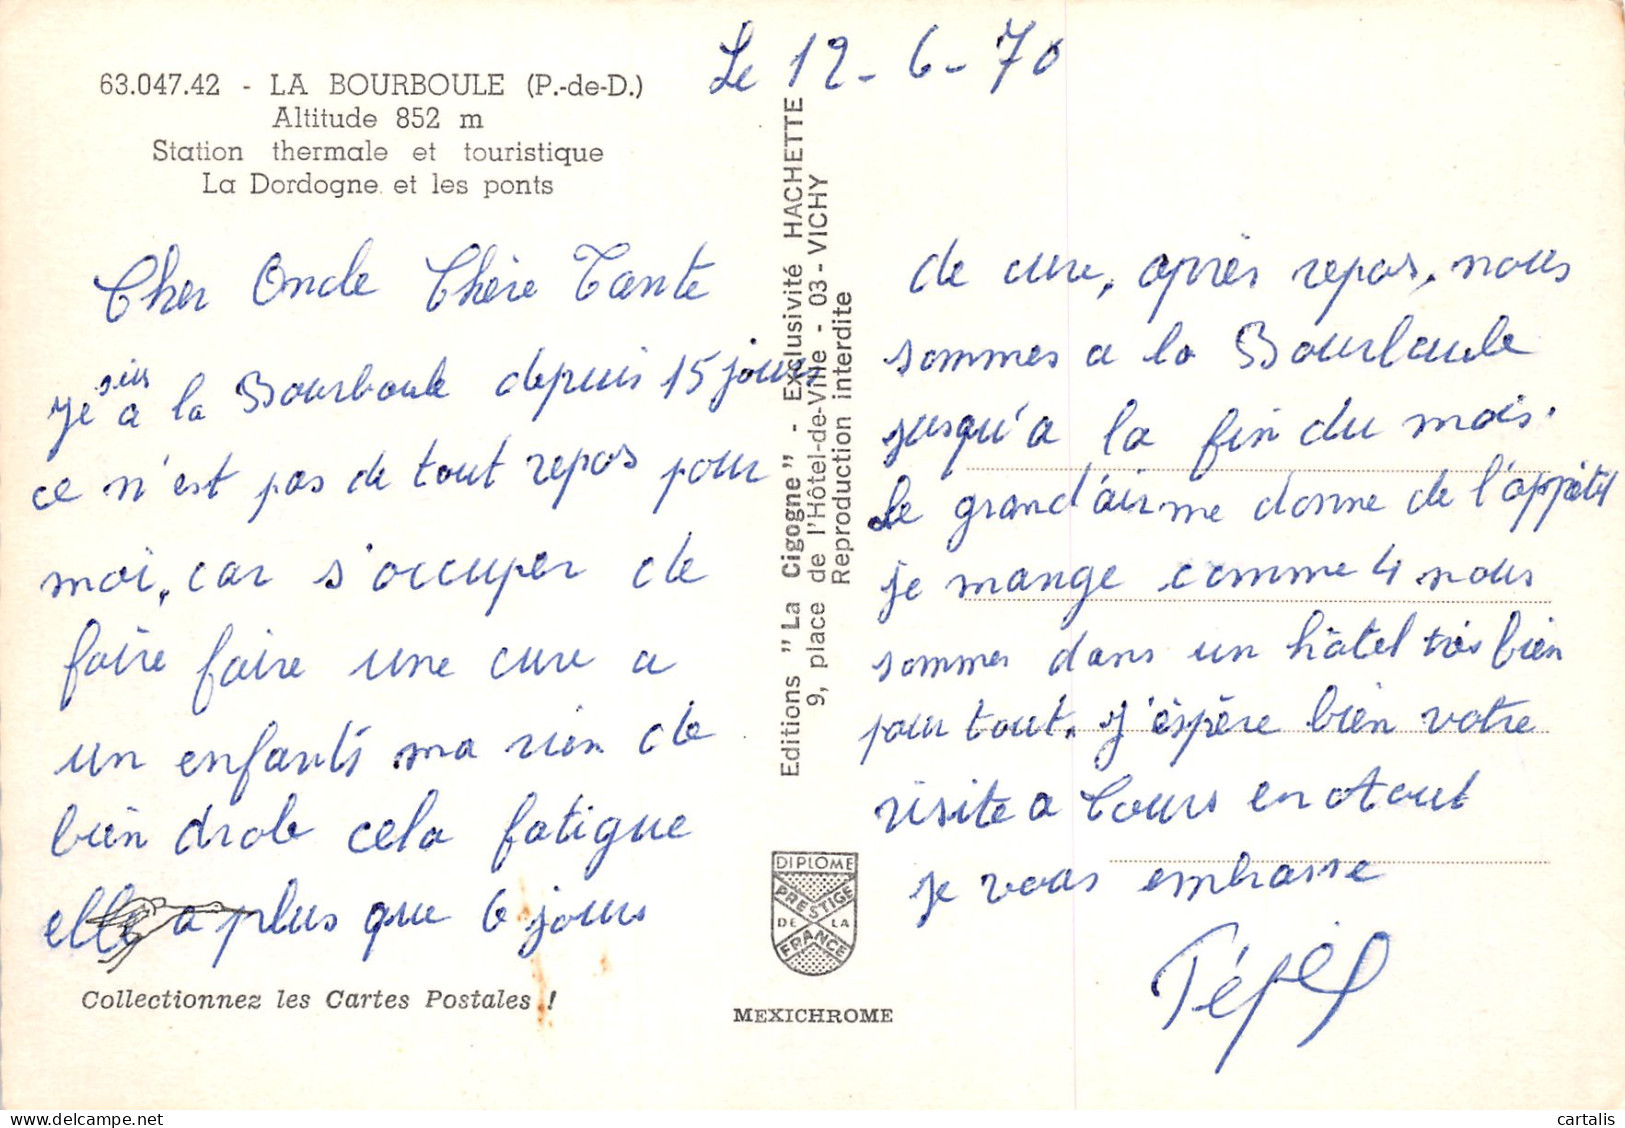 Le 12-6-70
63.047.42 - LA BOURBOULE (P.-de-D.)
Altitude 852 m
Station thermale et touristique
La Dordogne et les ponts
Cher Oncle Chère Tante
je suis a la Bourboule depuis 15 jours
ce n'est pas de tout repos pour
moi, car s'occuper de
faire faire une cure a
un enfants ma rien de
bien drole cela fatigue
elle a plus que 6 jours
Collectionnez les Cartes Postales !
Editions "La Cigogne" - Exclusivité HACHETTE
9, place de l'Hôtel-de-Ville - 03 - VICHY
Reproduction interdite
DIPLOME
PRESTIGE
DE LA
FRANCE
MEXICHROME
de cure, après repos, nous
sommes a la Bourboule
jusqu'a la fin du mois.
Le grand'air me donne de l'appétit
je mange comme 4 nous
sommes dans un hôtel très bien
pour tout. J'éspère bien votre
visite a Tours en Aout
je vous embrasse
cartalis